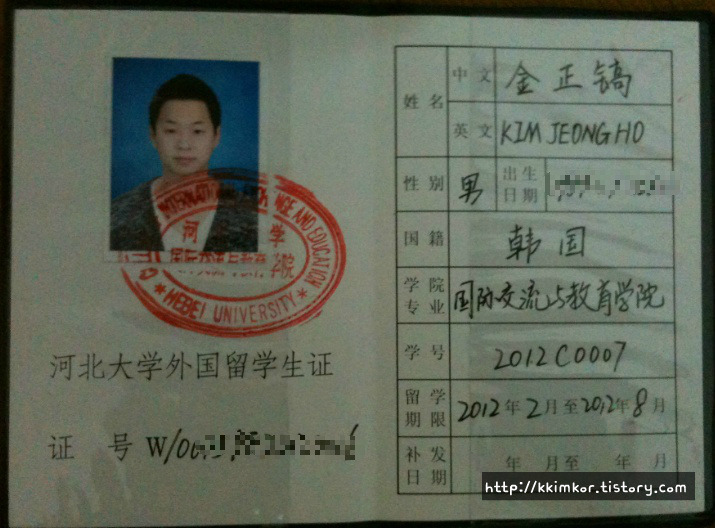 INTERNATIONAL EXCHANGE AND EDUCATION
河 学
国际交流与教育学院
* HEBEI UNIVERSITY *
河北大学外国留学生证
证 号 W/00
姓名 中文 金正镐
英文 KIM JEONG HO
性别 男 出生日期
国籍 韩国
学院专业 国际交流与教育学院
学号 2012C0007
留学期限 2012年2月至2012年8月
补发日期 年 月至 年 月
http://kkimkor.tistory.com